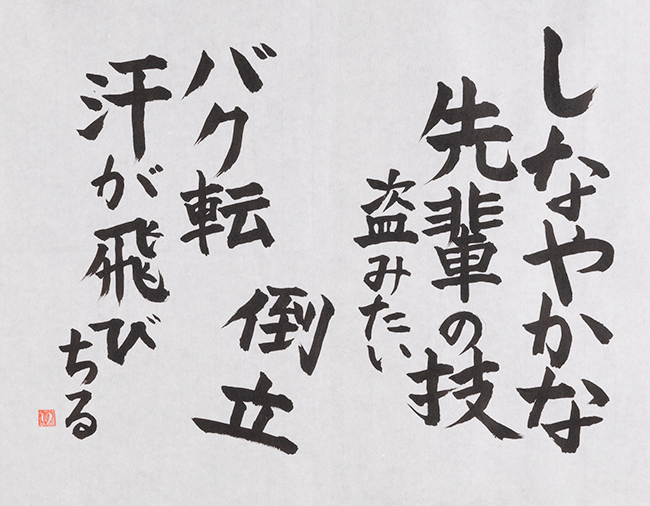 しなやかな
先輩の技
盗みたい
バク転
倒立
汗が飛び
ちる